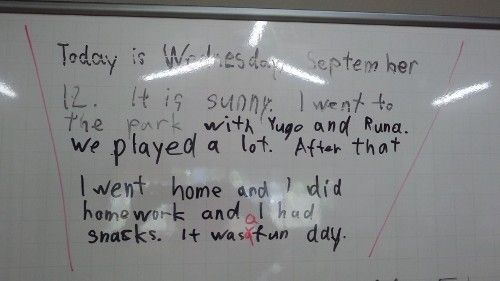 Today is Wednesday, September
12. It is sunny. I went to
the park with Yugo and Runa.
We played a lot. After that
I went home and I did
homework and I had
snacks. It was a fun day.